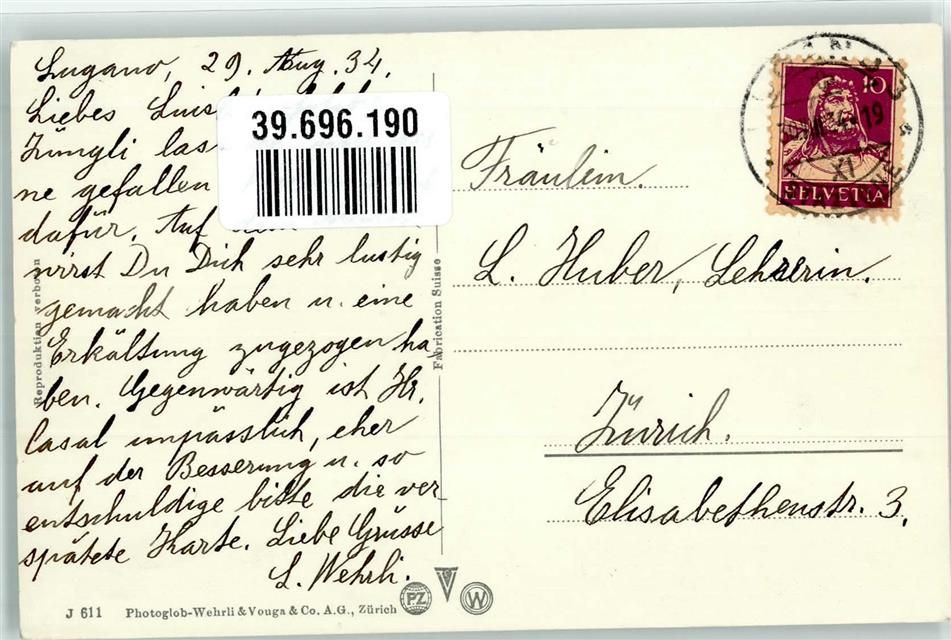 Lugano, 29. Aug. 34.
Liebes
39.696.190
Züngli las
ne gefallen
dafür. Auf
wirst Du Dich sehr lustig
gemacht haben u. eine
Erkältung zugezogen ha
ben. Gegenwärtig ist Hr.
Casal unpässlich, eher
auf der Besserung u. so
entschuldige bitte die ver-
spätete Karte. Liebe Grüsse
L. Wehrli.
Reproduktion verboten
Fabrication Suisse
10
HELVETIA
19
XI
Fräulein.
L. Huber, Lehrerin.
Zürich.
Elisabethenstr. 3.
J 611 Photoglob-Wehrli & Vouga & Co. A.G., Zürich
PZ
W